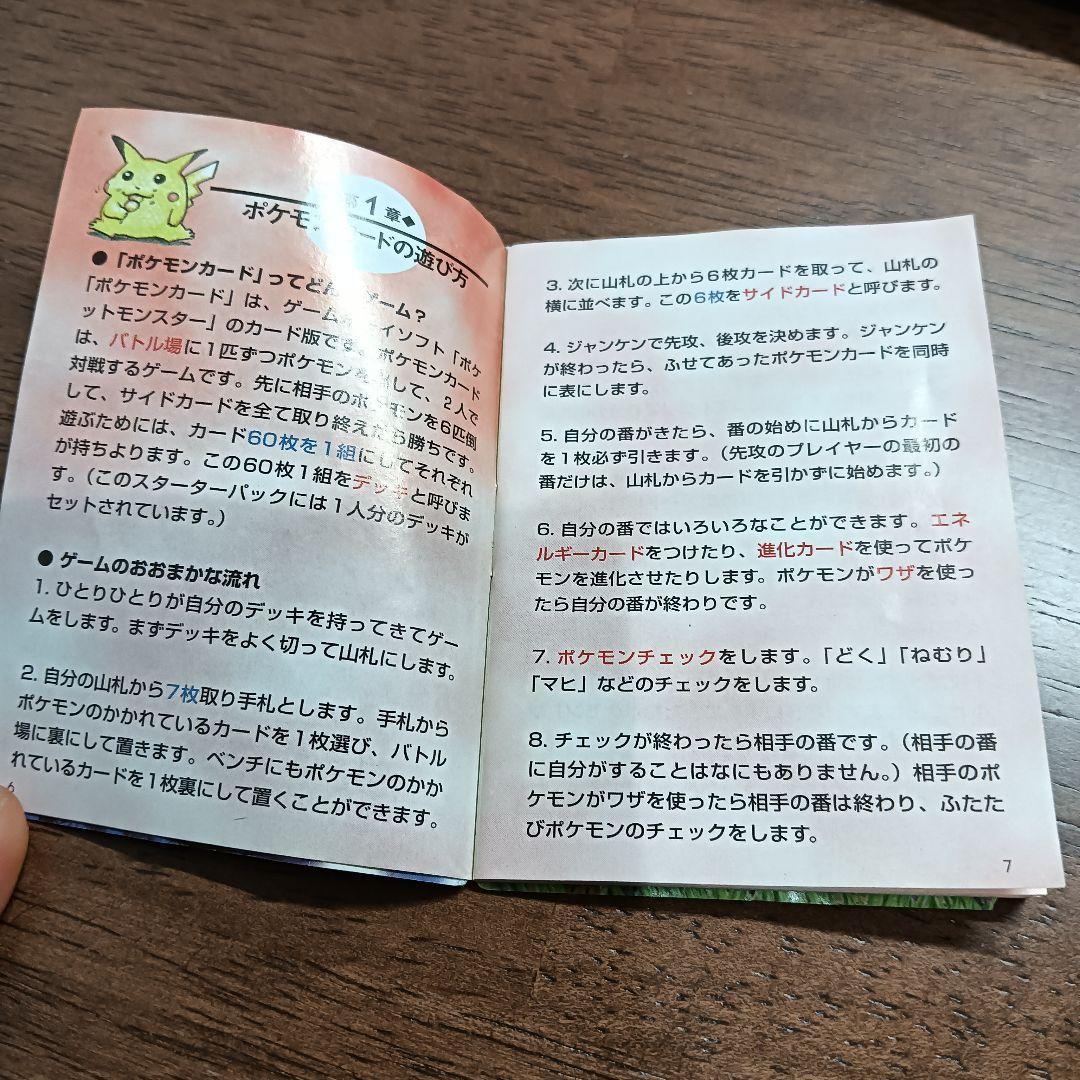 第1章◆
ポケモンカードの遊び方
●「ポケモンカード」ってどんなゲーム？
「ポケモンカード」は、ゲームボーイソフト「ポケ
ットモンスター」のカード版です。ポケモンカード
は、バトル場に1匹ずつポケモンを出して、2人で
対戦するゲームです。先に相手のポケモンを6匹倒
して、サイドカードを全て取り終えたら勝ちです。
遊ぶためには、カード60枚を1組にしてそれぞれ
が持ちよります。この60枚1組をデッキと呼びま
す。（このスターターパックには1人分のデッキが
セットされています。）
● ゲームのおおまかな流れ
1. ひとりひとりが自分のデッキを持ってきてゲー
ムをします。まずデッキをよく切って山札にします。
2. 自分の山札から7枚取り手札とします。手札から
ポケモンのかかれているカードを1枚選び、バトル
場に裏にして置きます。ベンチにもポケモンのかか
れているカードを1枚裏にして置くことができます。
6
3. 次に山札の上から6枚カードを取って、山札の
横に並べます。この6枚をサイドカードと呼びます。
4. ジャンケンで先攻、後攻を決めます。ジャンケン
が終わったら、ふせてあったポケモンカードを同時
に表にします。
5. 自分の番がきたら、番の始めに山札からカード
を1枚必ず引きます。（先攻のプレイヤーの最初の
番だけは、山札からカードを引かずに始めます。）
6. 自分の番ではいろいろなことができます。エネ
ルギーカードをつけたり、進化カードを使ってポケ
モンを進化させたりします。ポケモンがワザを使っ
たら自分の番が終わりです。
7. ポケモンチェックをします。「どく」「ねむり」
「マヒ」などのチェックをします。
8. チェックが終わったら相手の番です。（相手の番
に自分がすることはなにもありません。）相手のポ
ケモンがワザを使ったら相手の番は終わり、ふたた
びポケモンのチェックをします。
7